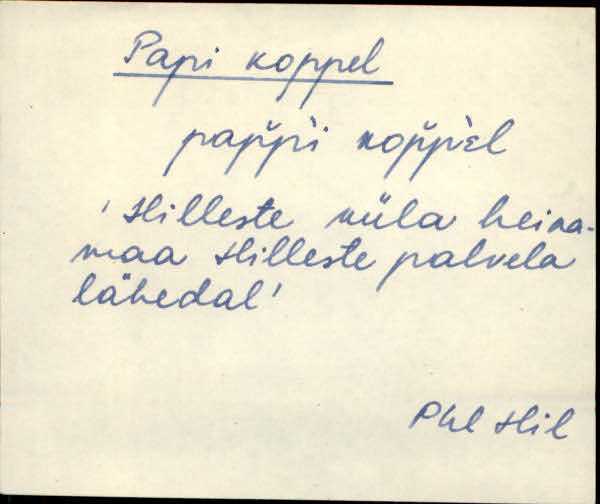 Papi koppel
pap̆p̀i kop̆p̀ɛl
'Hilleste küla heina-
maa Hilleste palvela
lähedal'
Phl Hil